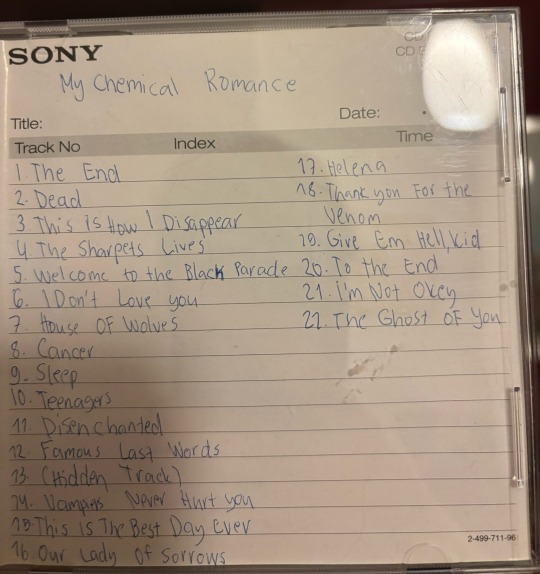 SONY
CD
CD
My Chemical Romance
Title:
Date:
Track No Index Time
1. The End
2. Dead
3. This is How I Disappear
4. The Sharpets Lives
5. Welcome to the Black Parade
6. I Don't Love you
7. House OF Wolves
8. Cancer
9. Sleep
10. Teenagers
11. Disenchanted
12. Famous Last Words
13. (Hidden Track)
14. Vampires Never Hurt you
15. This Is The Best Day Ever
16. Our Lady Of Sorrows
17. Helena
18. Thank you For the
Venom
19. Give Em Hell, Kid
20. To the End
21. I'm Not Okey
22. The Ghost OF You
2-499-711-96